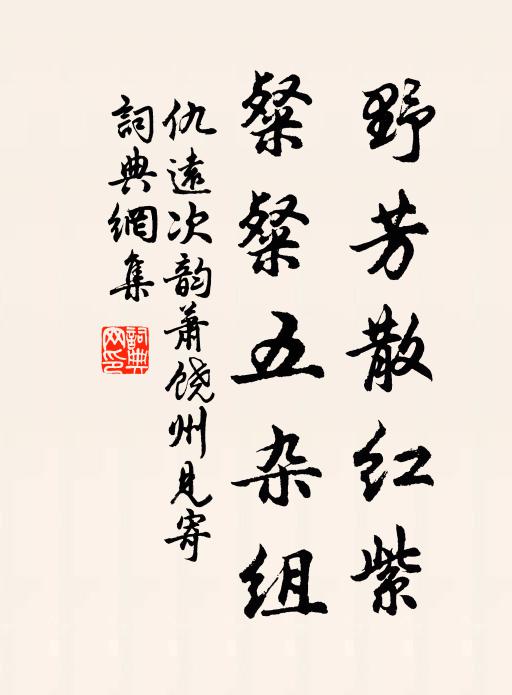 野芳散红紫
粲粲五杂组
仇遠次韵萧饶州見寄
詞典網集
詞典網印